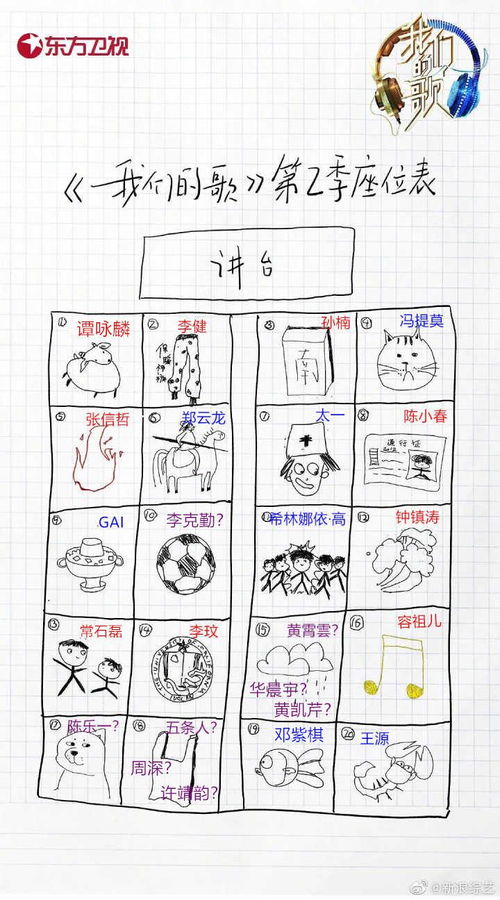 东方卫视
我们的歌
《我们的歌》第2季座位表
讲台
① 谭咏麟 ② 李健 ③ 孙楠 ④ 冯提莫
保暖神裤
南
⑤ 张信哲 ⑥ 郑云龙 ⑦ 太一 ⑧ 陈小春
通行证
⑨ GAI ⑩ 李克勤? ⑪ 希林娜依·高 ⑫ 钟镇涛
⑬ 常石磊 ⑭ 李玟 ⑮ 黄霄雲? ⑯ 容祖儿
华晨宇?
黄凯芹?
⑰ 陈乐一? ⑱ 五条人? ⑲ 邓紫棋 ⑳ 王源
周深?
许靖韵?
@新浪综艺